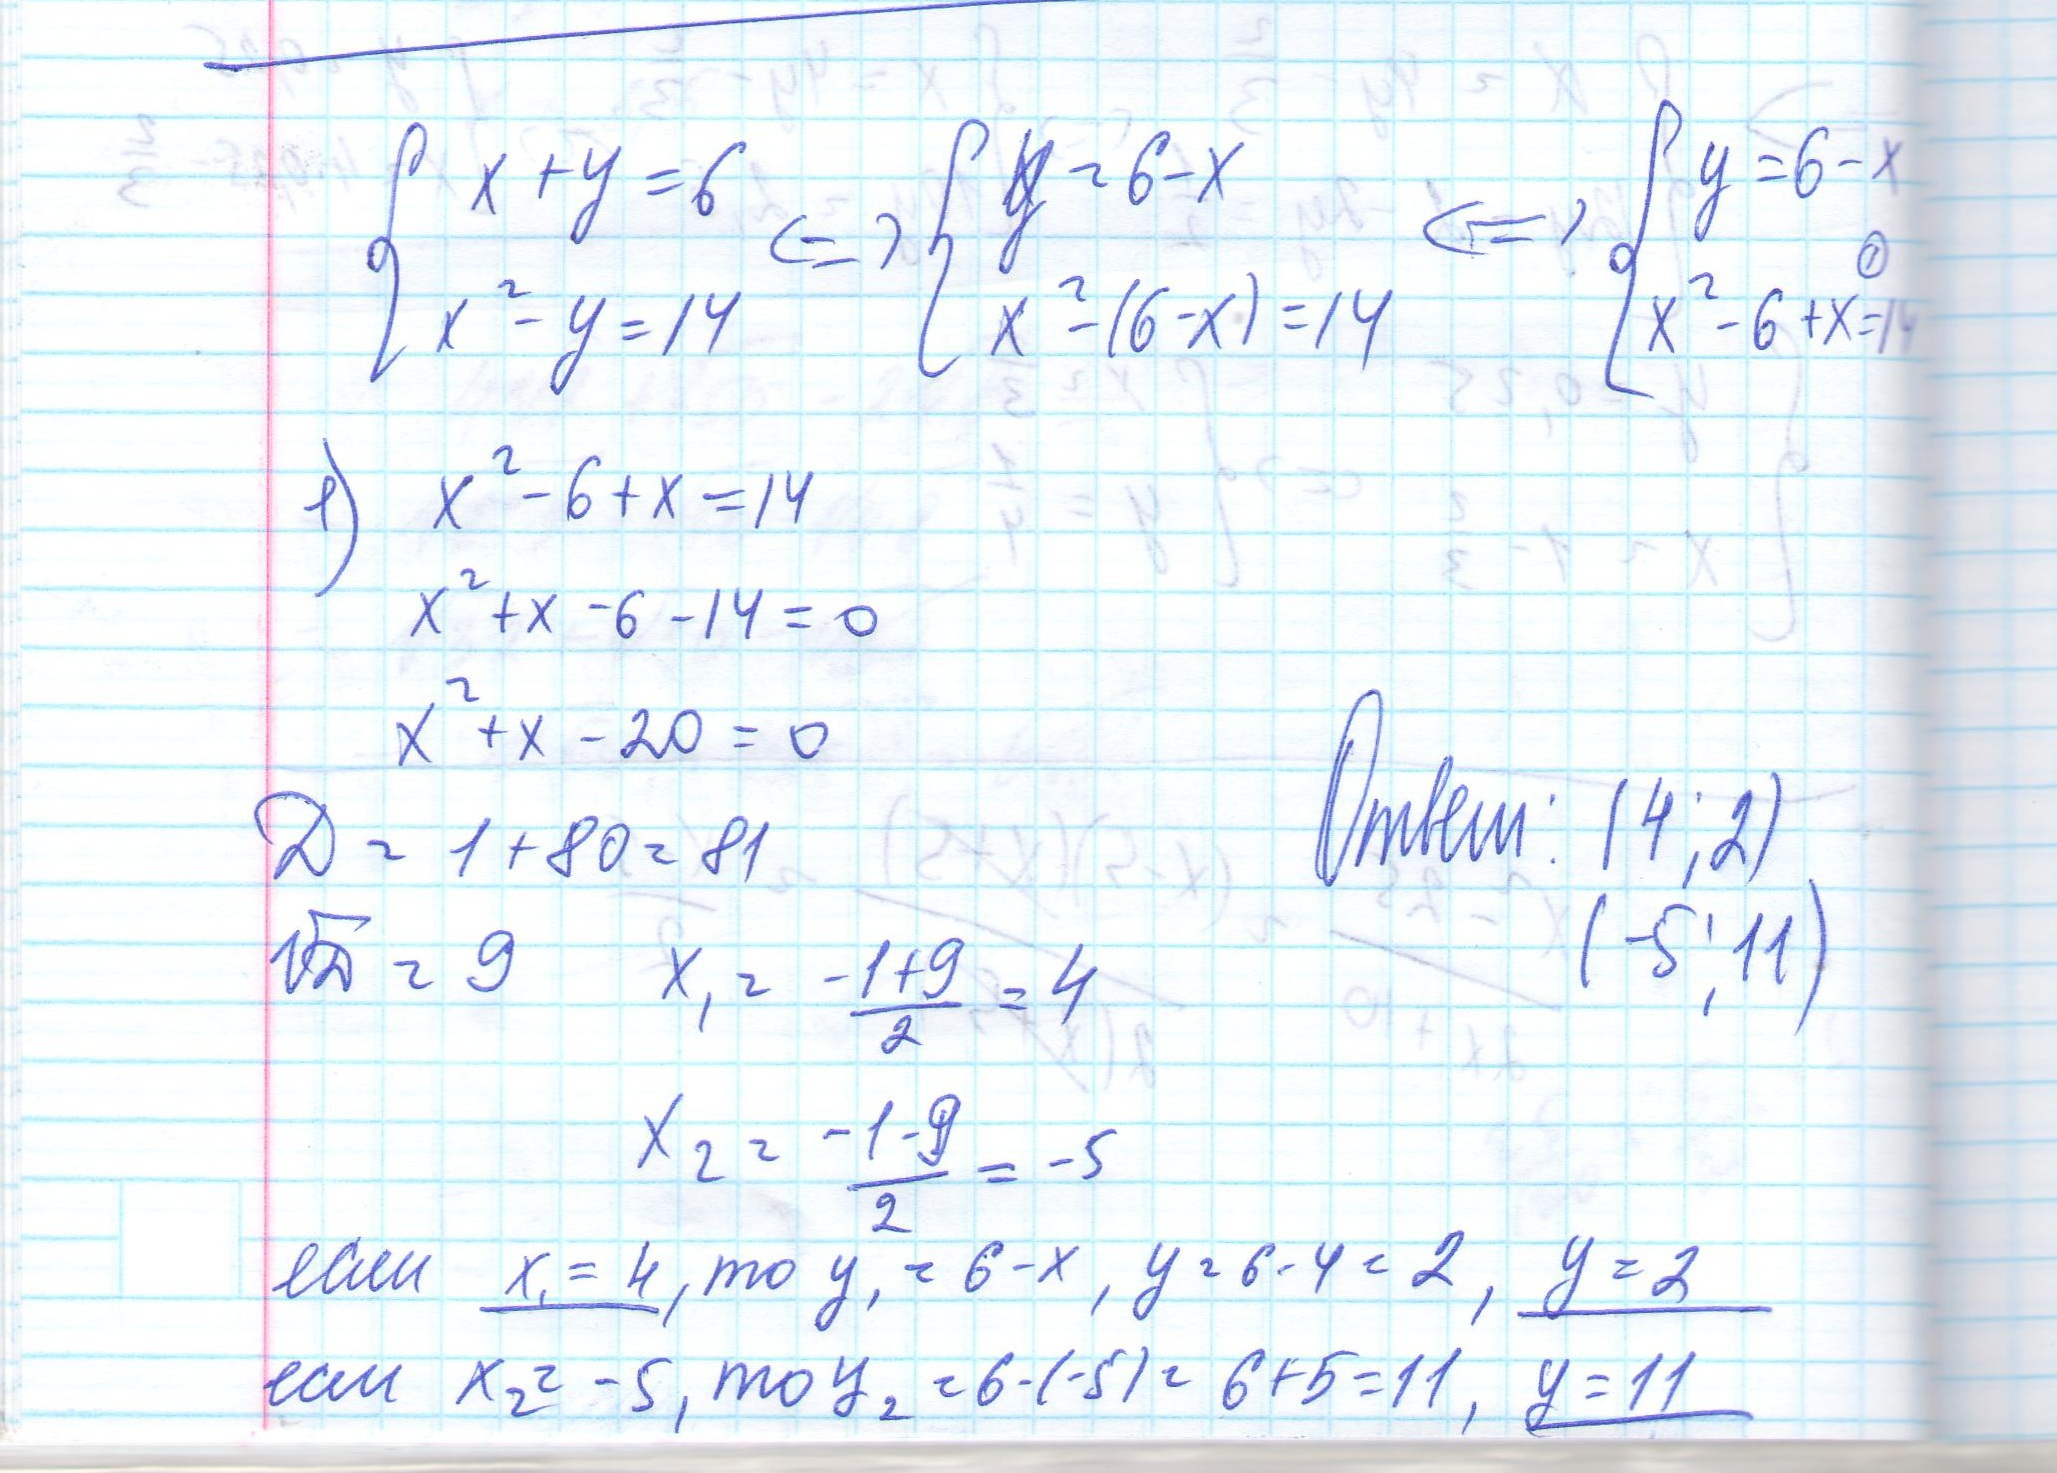 { x + y = 6 <=> { y = 6 - x <=> { y = 6 - x
x² - y = 14 x² - (6 - x) = 14 x² - 6 + x = 14 ①
1) x² - 6 + x = 14
x² + x - 6 - 14 = 0
x² + x - 20 = 0
D = 1 + 80 = 81
√D = 9 x₁ = (-1+9)/2 = 4
x₂ = (-1-9)/2 = -5
Ответ: (4; 2)
(-5; 11)
если x₁ = 4, то y₁ = 6 - x, y = 6 - 4 = 2, y = 2
если x₂ = -5, то y₂ = 6 - (-5) = 6 + 5 = 11, y = 11